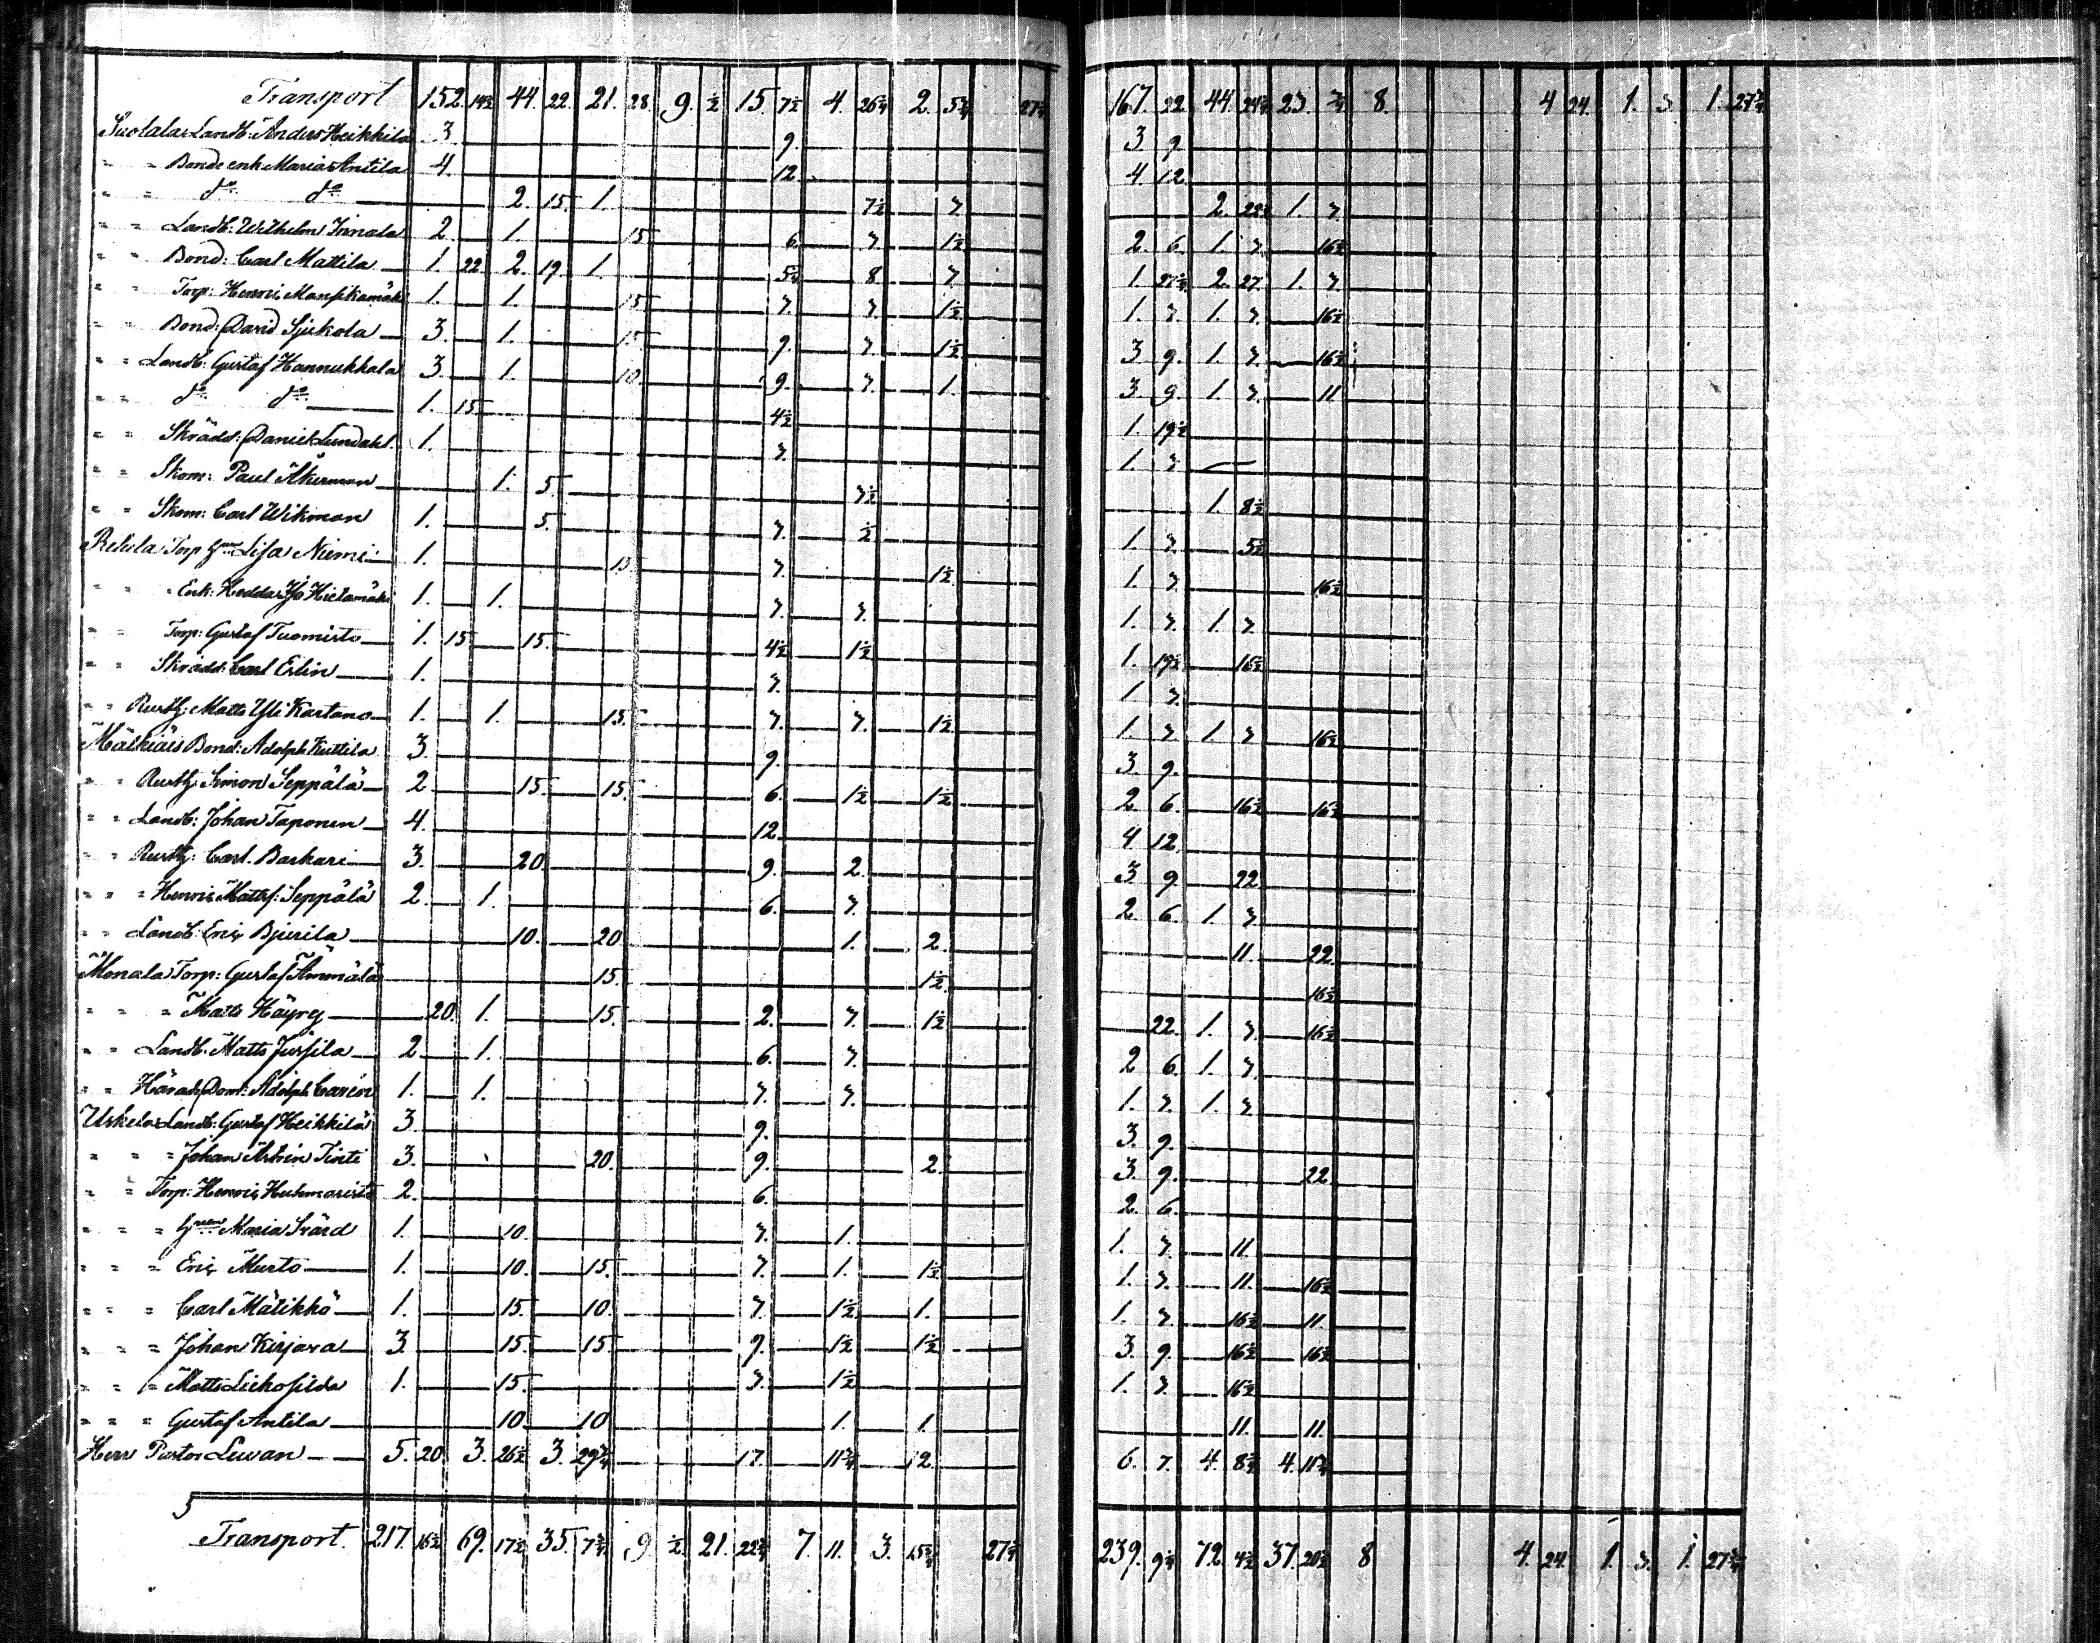 Transport 152. 14½ 44. 22. 21. 28. 9. ½ 15. 7½ 4. 26¼ 2. 5¾ 27¾ 167. 22 44. 24¾ 23. ¾ 8. 4 24. 1. 3. 1. 27¾
Suolala Landb: Anders Heikkilä 3. 9. 3 9
" " Bonde enk. Maria Antila 4. 12. 4. 12
" " do do 2. 15. 1. 7½ 3. 2. 22½ 1. 3.
" " Landb: Wilhelm Innala 2. 1. 15 6. 3. 1½ 2. 6. 1. 3. 16½
" " Bond: Carl Mattila 1. 22 2. 19. 1. 5¼ 8. 3. 1 27¼ 2. 27. 1. 3
" " Torp: Henric Mansikamäki 1. 1. 15 3. 3. 1½ 1. 3. 1. 3. 16½
" " Bond: David Sjukola 3. 1. 15 9. 3. 1½ 3 9. 1. 3. 16½
" " Landb: Gustaf Hannukkala 3. 1. 10. 9. 3. 1. 3. 9. 1. 3. 11
" " do do 1. 15. 4½ 1. 19½
" " Skrädd: Daniel Lundahl. 1. 3. 1. 3
" " Skom: Paul Åkerman 1. 5. 3½ 1. 8½
" " Skom: Carl Wikman 1. 5. 3. ½ 1. 3. 5½
Rekola Torp Lisa Niemi 1. 15. 3. 1½ 1. 3. 16½
" " Enk: Hedda Hietamäki 1. 1. 3. 3. 1. 3. 1. 3
" " Torp: Gustaf Tuomisto 1. 15. 15. 4½ 1½ 1. 19½ 16½
" " Skrädd: Carl Erlin 1. 3. 1. 3.
" " Rusth: Matts Yli Kartano 1. 1. 15. 3. 3. 1½ 1. 3. 1. 3 16½
Mälkiäis Bond: Adolph Kuttila 3. 9. 3. 9.
" " Rusth: Simon Seppälä 2. 15. 15. 6. 1½ 1½ 2. 6. 16½ 16½
" " Landb: Johan Taponen 4. 12. 4 12.
" " Rusth: Carl Barkari 3. 20. 9. 2. 3 9. 22.
" " " Henric Mattss: Seppälä 2. 1. 6. 3. 2. 6 1. 3
" " Landb: Eric Bjurila 10. 20. 1. 2. 11. 22.
Monala Torp: Gustaf Ämmälä 15. 1½ 16½
" " " Matts Häyry 20. 1. 15. 2. 3. 1½ 22. 1. 3. 16½
" " Landb: Matts Jussila 2. 1. 6. 3. 2 6. 1. 3.
" " Härads Dom: Adolph Carén 1. 1. 3. 3. 1. 3. 1. 3
Uskela Landb: Gustaf Heikkilä 3. 9. 3. 9.
" " " Johan Tinti 3. 20. 9. 2. 3. 9. 22.
" " Torp: Henric Huhmaristo 2. 6. 2. 6.
" " " Maria Svärd 1. 10. 3. 1. 1. 3. 11.
" " " Eric Murto 1. 10. 15. 3. 1. 1½ 1. 3. 11. 16½
" " " Carl Mätikkö 1. 15. 10. 3. 1½ 1. 1. 3. 16½ 11.
" " " Johan Kirjava 3. 15. 15. 9. 1½ 1½ 3 9. 16½ 16½
" " " Matts 1. 15. 3. 1½ 1. 3. 16½
" " " Gustaf Antila 10. 10. 1. 1. 11. 11.
Herr Pastor Lewan 5. 20. 3. 26½ 3. 29¾ 17. 11¾ 12. 6. 7. 4. 8¼ 4. 11¾
Transport. 217. 16½ 69. 17½ 35. 7¾ 9. ½ 21. 22¾ 7. 11. 3. 15¾ 27¾ 239. 9¼ 72. 4½ 37. 20½ 8 4. 24. 1. 3. 1. 27¾